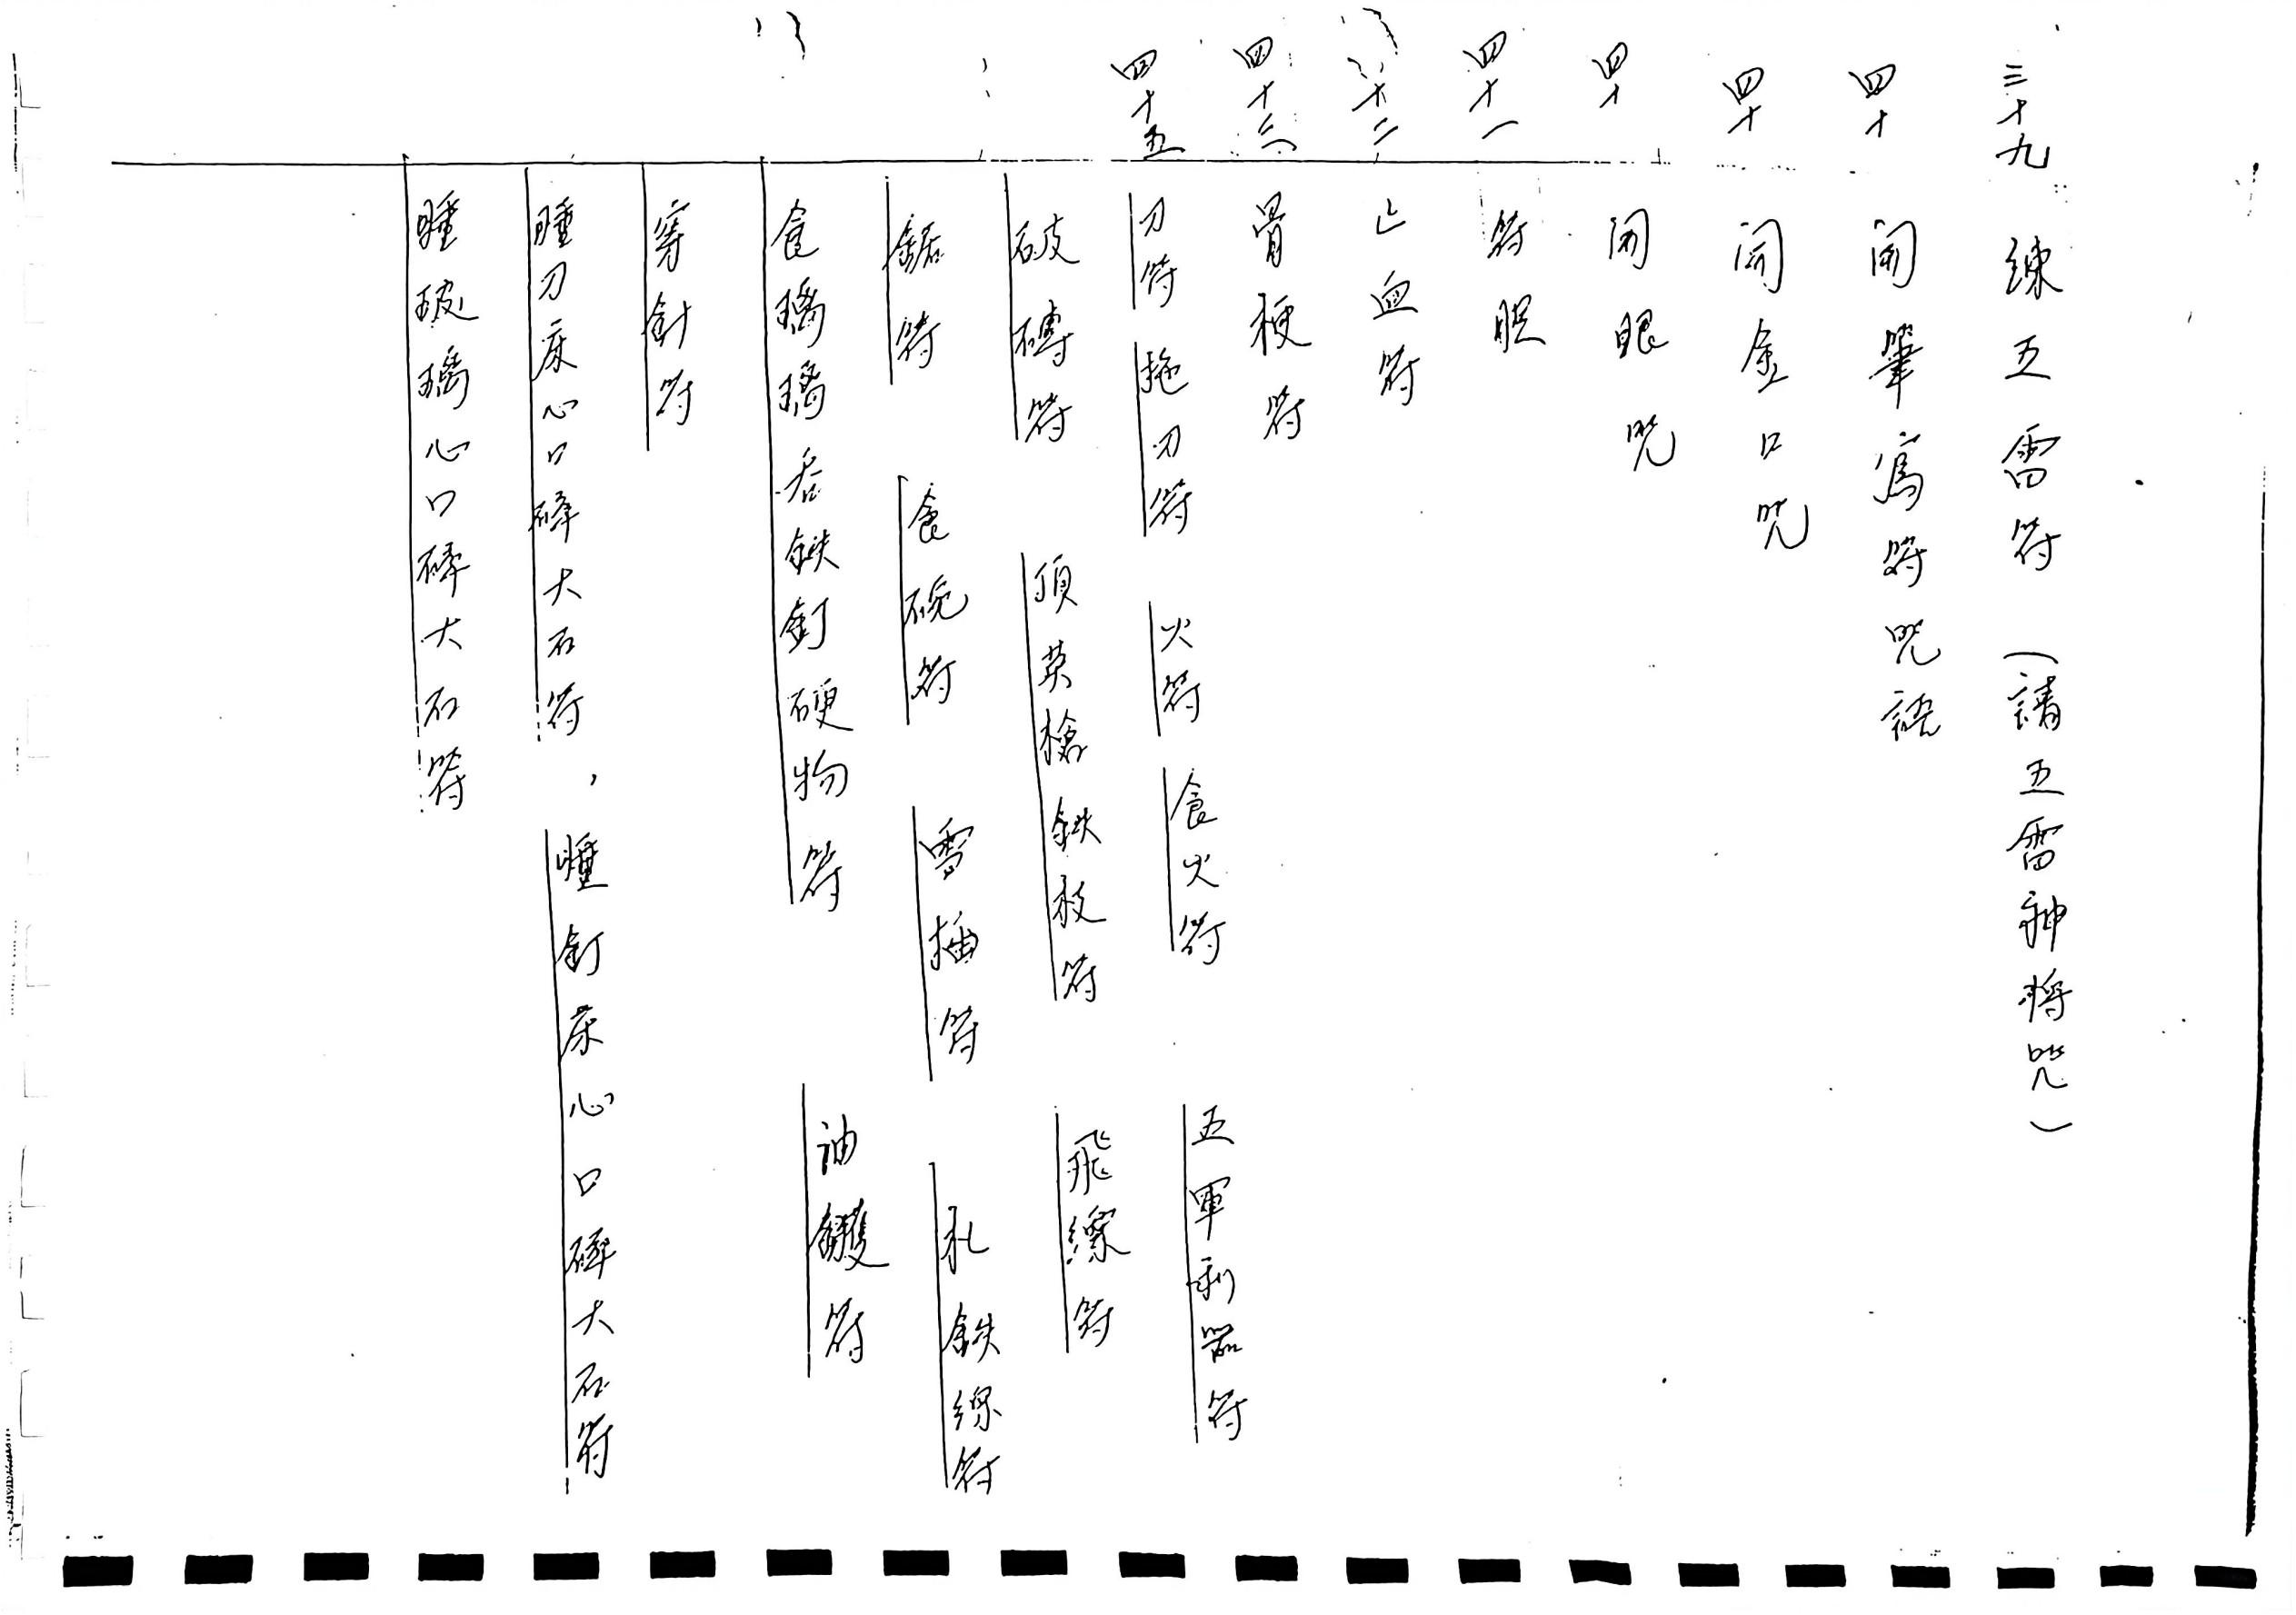 三十九 練五雷符 (請五雷神将咒)
四十 開筆寫符咒語
四十 開金口咒
四十 開眼咒
四十一 符胆
四十二 止血符
四十三 骨梗符
四十五 刀符 拖刀符 火符 食火符 五軍利器符
破磚符 頂英槍鉄枝符 飛縲符
鋸符 食碗符 雪插符 札鉄線符
食璃璃吞鉄釘硬物符 油鑊符
穿針符
睡刀床心口碎大石符, 睡釘床心口碎大石符
睡玻璃心口碎大石符